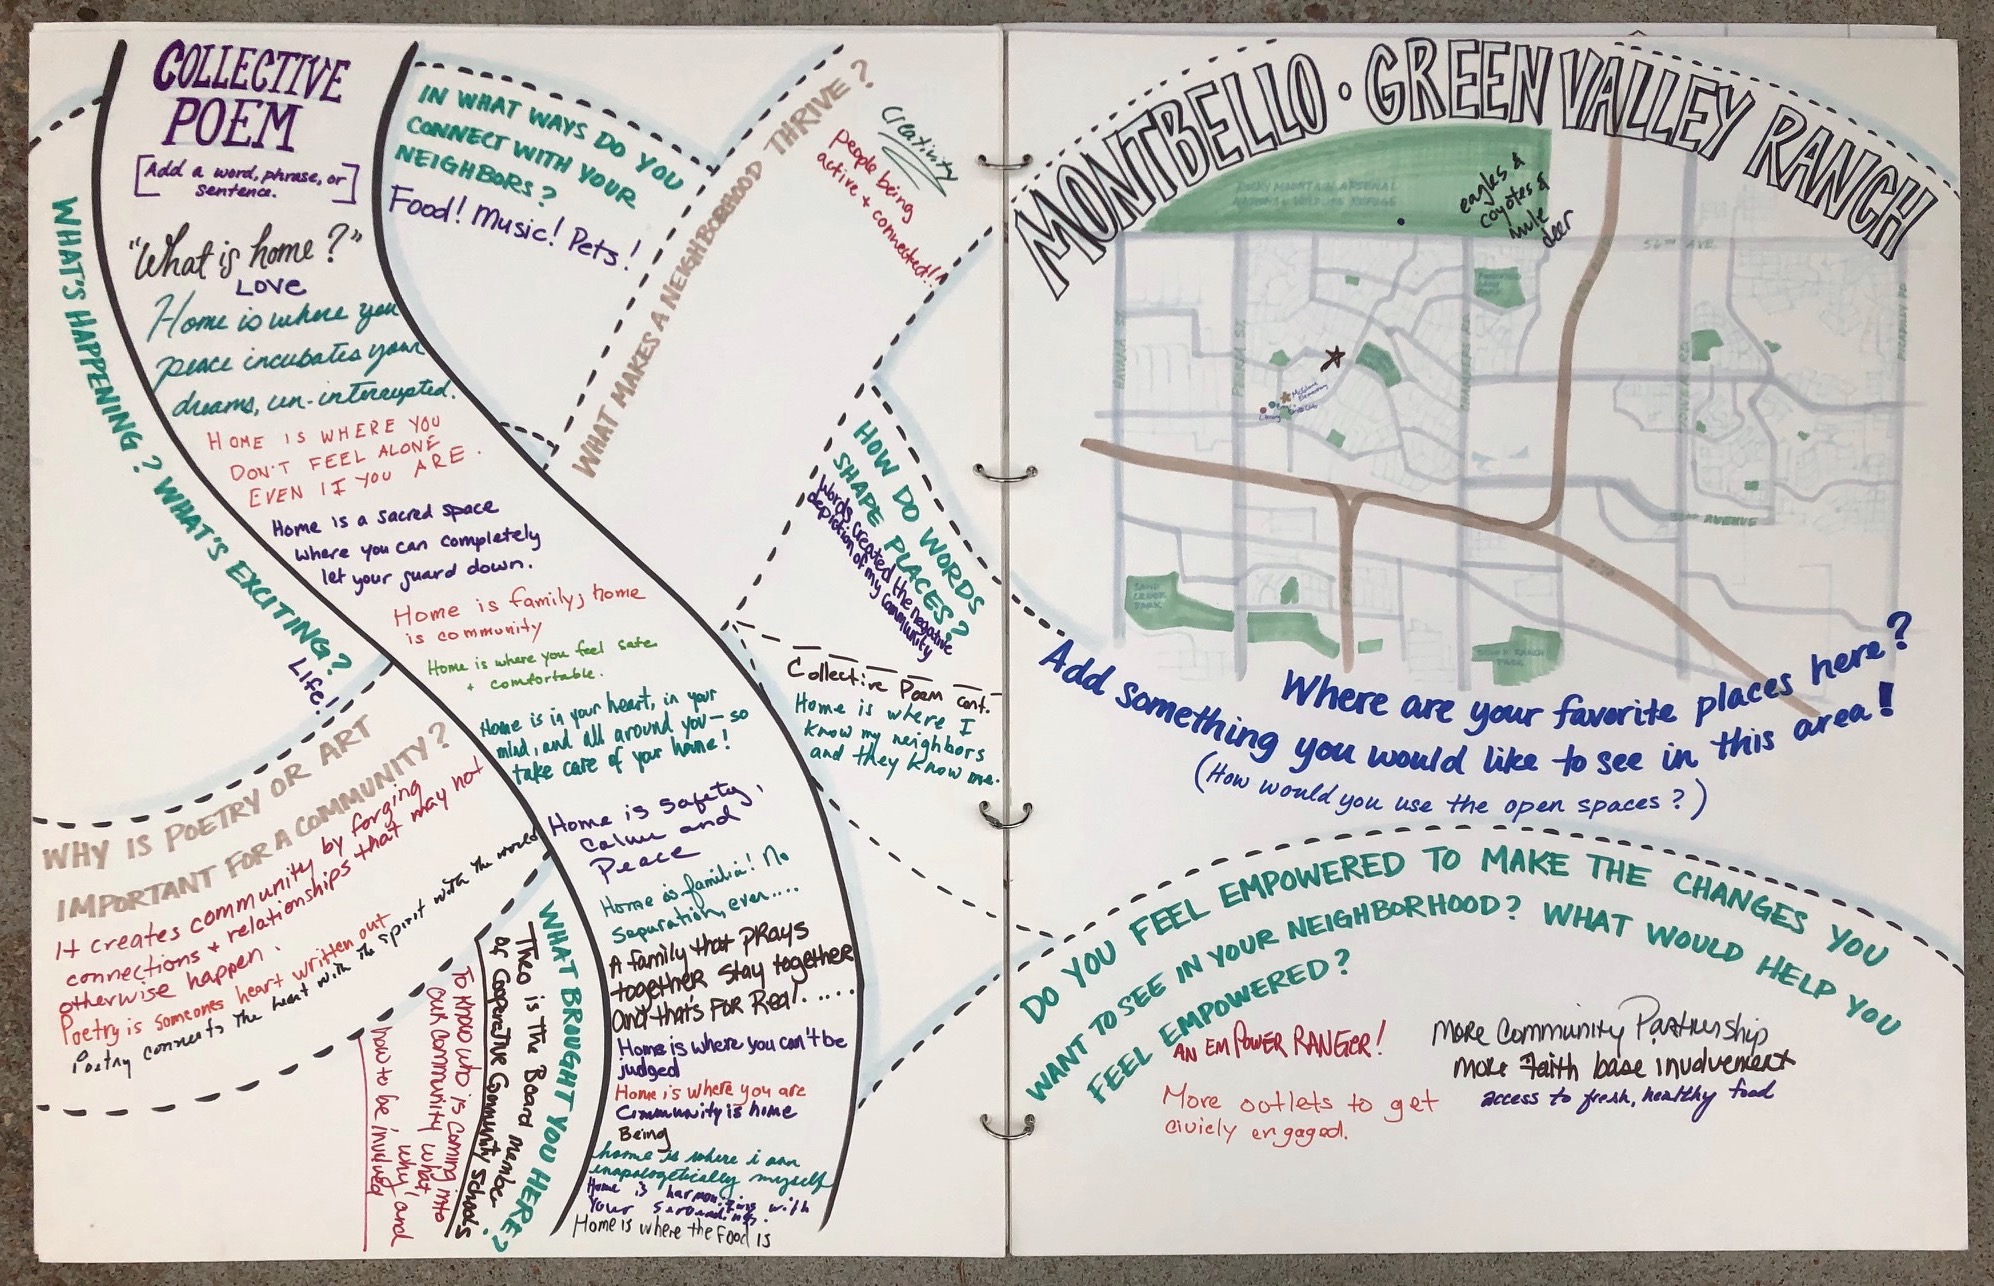 COLLECTIVE
POEM
[Add a word, phrase, or
sentence.]
"What is home?"
LOVE
Home is where you
peace incubates your
dreams, un-interrupted.
HOME IS WHERE YOU
DON'T FEEL ALONE
EVEN IF YOU ARE.
Home is a sacred space
where you can completely
let your guard down.
Home is family; home
is community
Home is where you feel safe
+ comfortable.
Home is in your heart, in your
mind, and all around you — so
take care of your home!
Home is safety,
Calm and
Peace
Home is familia! No
sapuration, ever....
A family that prays
together stay together
and that's For Real.....
Home is where you can't be
judged
Home is where you are
Community is home
Being
home is where i am
unapologetically myself
Home is harmonizing with
your surroundings.
Home is where the Food is
WHAT'S HAPPENING? WHAT'S EXCITING?
Life!
WHY IS POETRY OR ART
IMPORTANT FOR A COMMUNITY?
It creates community by forging
connections + relationships that may not
otherwise happen.
Poetry is someones heart written out
Poetry connects the heart with the spirit with the world
WHAT BROUGHT YOU HERE?
Theo is the Board member
of Cooperative Community Schools
To know who is coming into
our community, what,
why, and
how to be involved
IN WHAT WAYS DO YOU
CONNECT WITH YOUR
NEIGHBORS?
Food! Music! Pets!
WHAT MAKES A NEIGHBORHOOD THRIVE?
Creativity
people being
active, + connected!!
HOW DO WORDS
SHAPE PLACES?
Words created the negative
depiction of my community
Collective Poem cont.
Home is where I
know my neighbors
and they know me.
MONTBELLO · GREEN VALLEY RANCH
ROCKY MOUNTAIN ARSENAL
NATIONAL WILDLIFE REFUGE
eagles &
coyotes &
mule
deer
56TH AVE
HAVANA ST
PEORIA ST.
CHAMBERS RD
TOWER RD
PICADILLY RD
McGlone
Elementary
Library
AVENUE
I-70
SAND
CREEK
PARK
PARK
Where are your favorite places here?
Add something you would like to see in this area!
(How would you use the open spaces?)
DO YOU FEEL EMPOWERED TO MAKE THE CHANGES YOU
WANT TO SEE IN YOUR NEIGHBORHOOD? WHAT WOULD HELP YOU
FEEL EMPOWERED?
AN EMPOWER RANGER!
More outlets to get
civicly engaged.
More Community Partnership
more Faith base involvement
access to fresh, healthy food